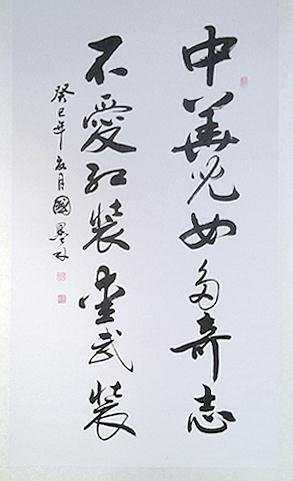 中華兒女多奇志
不愛紅裝愛武裝
癸巳年 月國